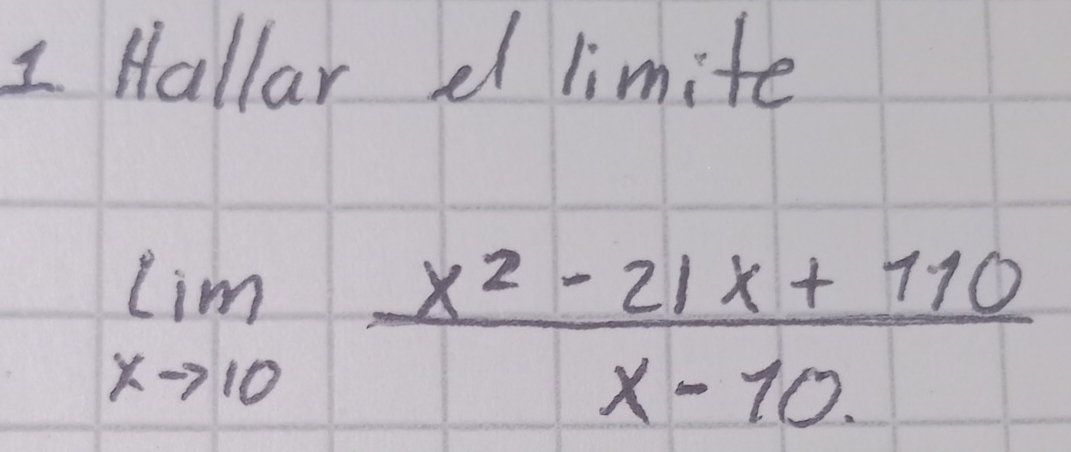 1. Hallar el limite
lim x→10 (x² - 21x + 110) / (x - 10).